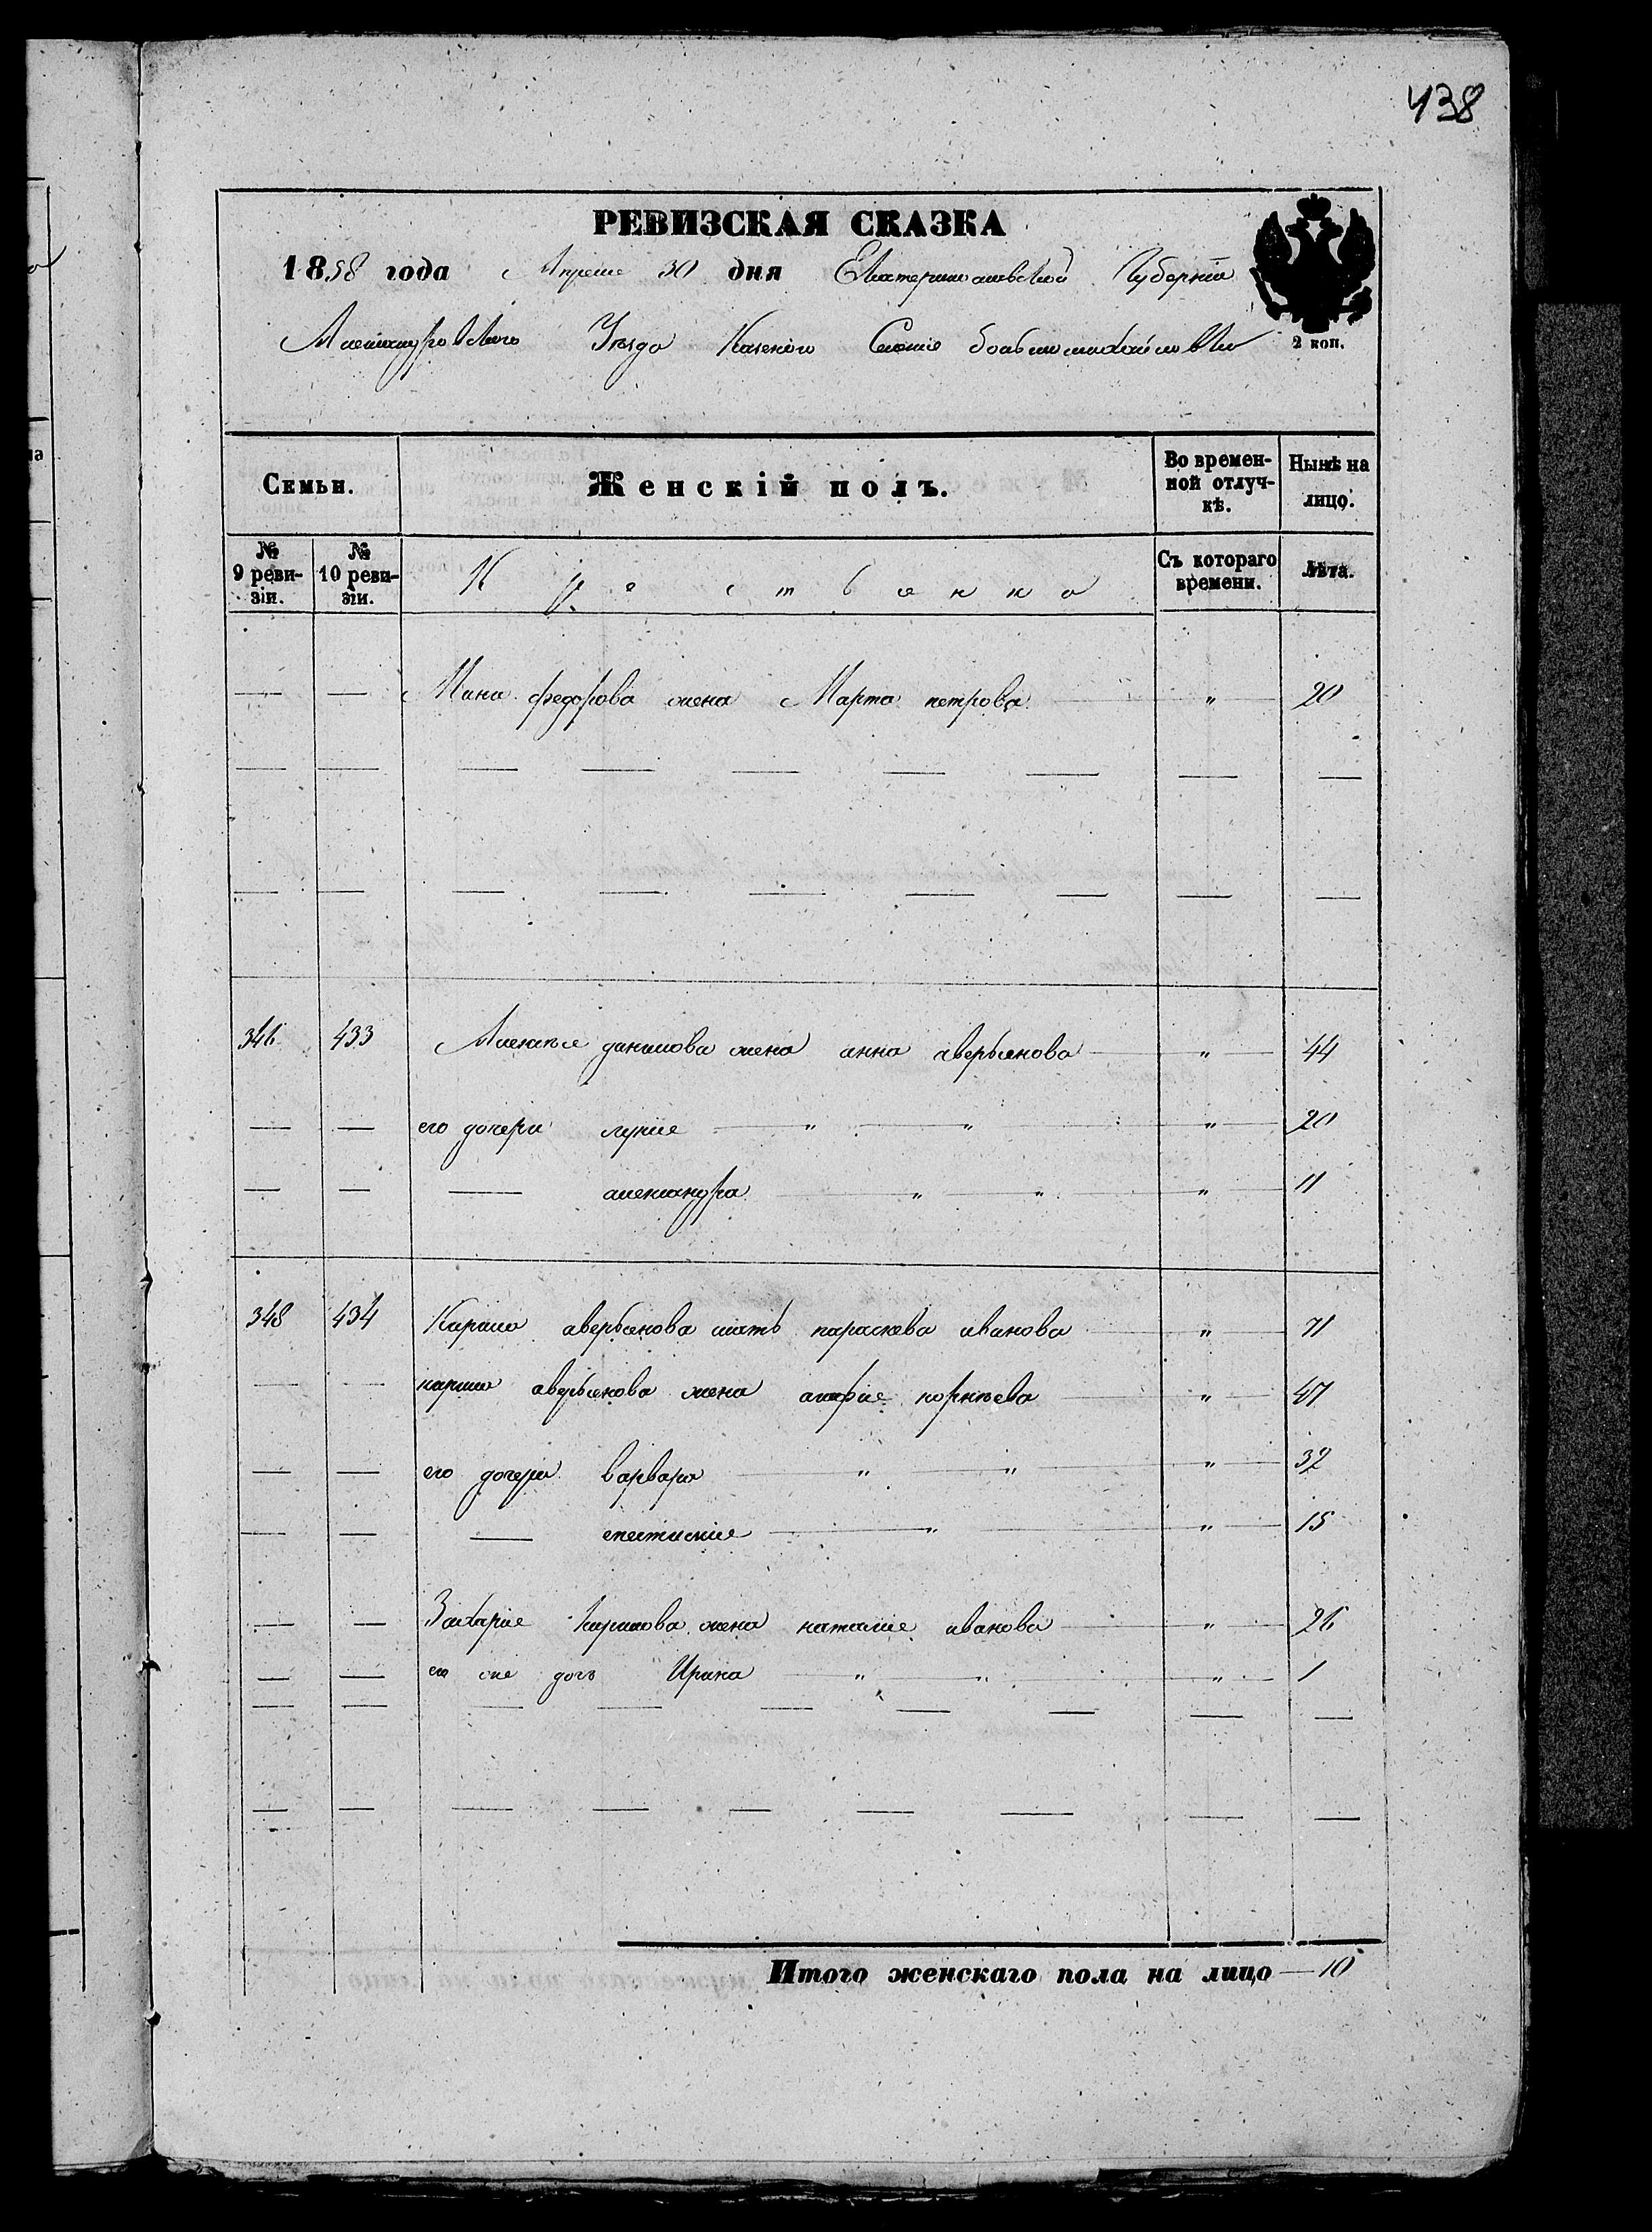 438
РЕВИЗСКАЯ СКАЗКА
1858 года Апреля 30 дня Екатеринославской Губерніи
Александровскаго Уѣзда Казенаго Селенія большемихайловки
2 коп.
Семьи.
Женскій полъ.
Во времен-
ной отлуч-
кѣ.
Нынѣ на
лицо.
№
9 реви-
зіи.
№
10 реви-
зіи.
Съ котораго
времени.
Лѣта.
— — Мина федорова жена Марта петрова — " — 20
346 433 Алексѣя данилова жена анна аверьянова — " — 44
— — его дочери лукія — " — " — " — 20
— — — александра — " — " — " — 11
348 434 Кирила аверьянова мать параскева иванова — " — 71
— — кирила аверьянова жена агафія корнѣева — " — 47
— — его дочери варвара — " — " — " — 32
— — — — " — " — 15
— — Захарія кирилова жена наталія иванова — " — 26
— — его же дочь Ирина — " — " — " — 1
Итого женскаго пола на лицо — 10